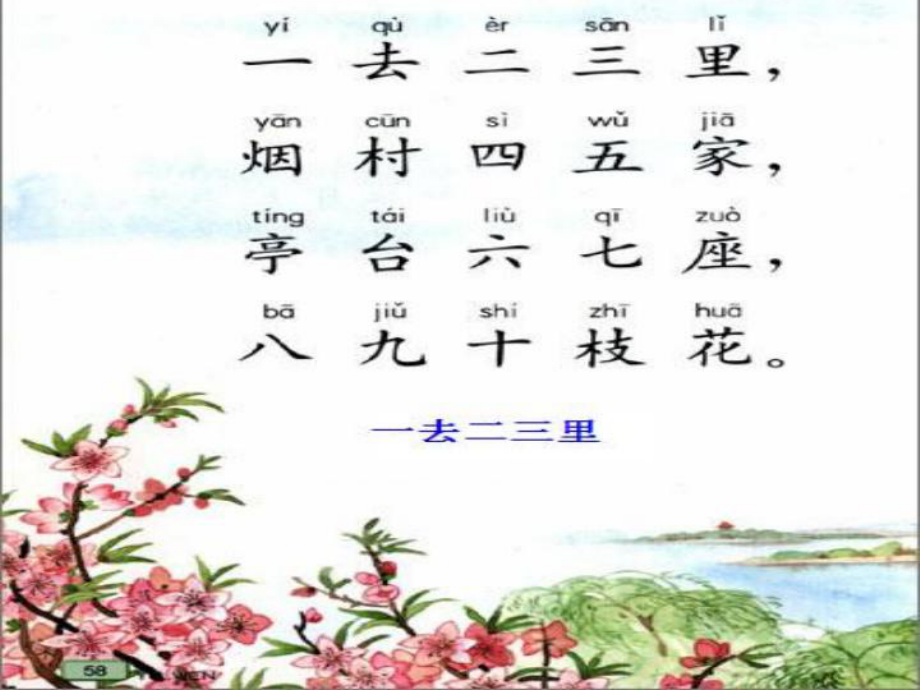 yí qù èr sān lǐ
一去二三里，
yān cūn sì wǔ jiā
烟村四五家，
tíng tái liù qī zuò
亭台六七座，
bā jiǔ shí zhī huā
八九十枝花。
一去二三里
58